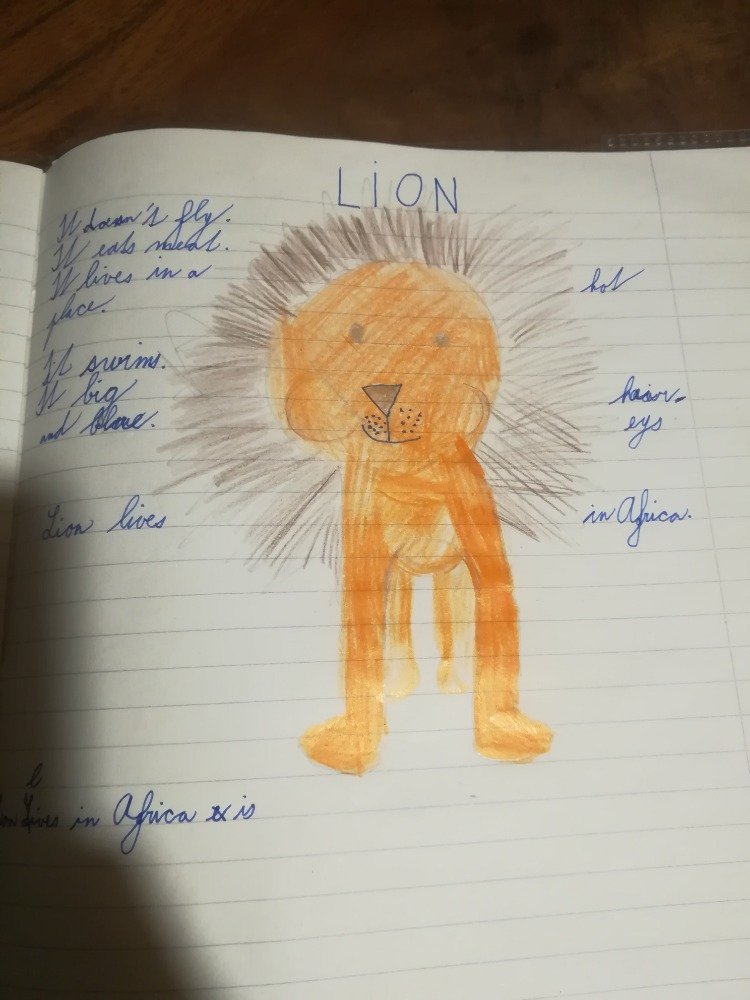 LiON
It doesn't fly.
It eats meat.
It lives in a hot
place.
It swims.
It big hair-
and eys
Lion lives in Africa.
l
lives in Africa is